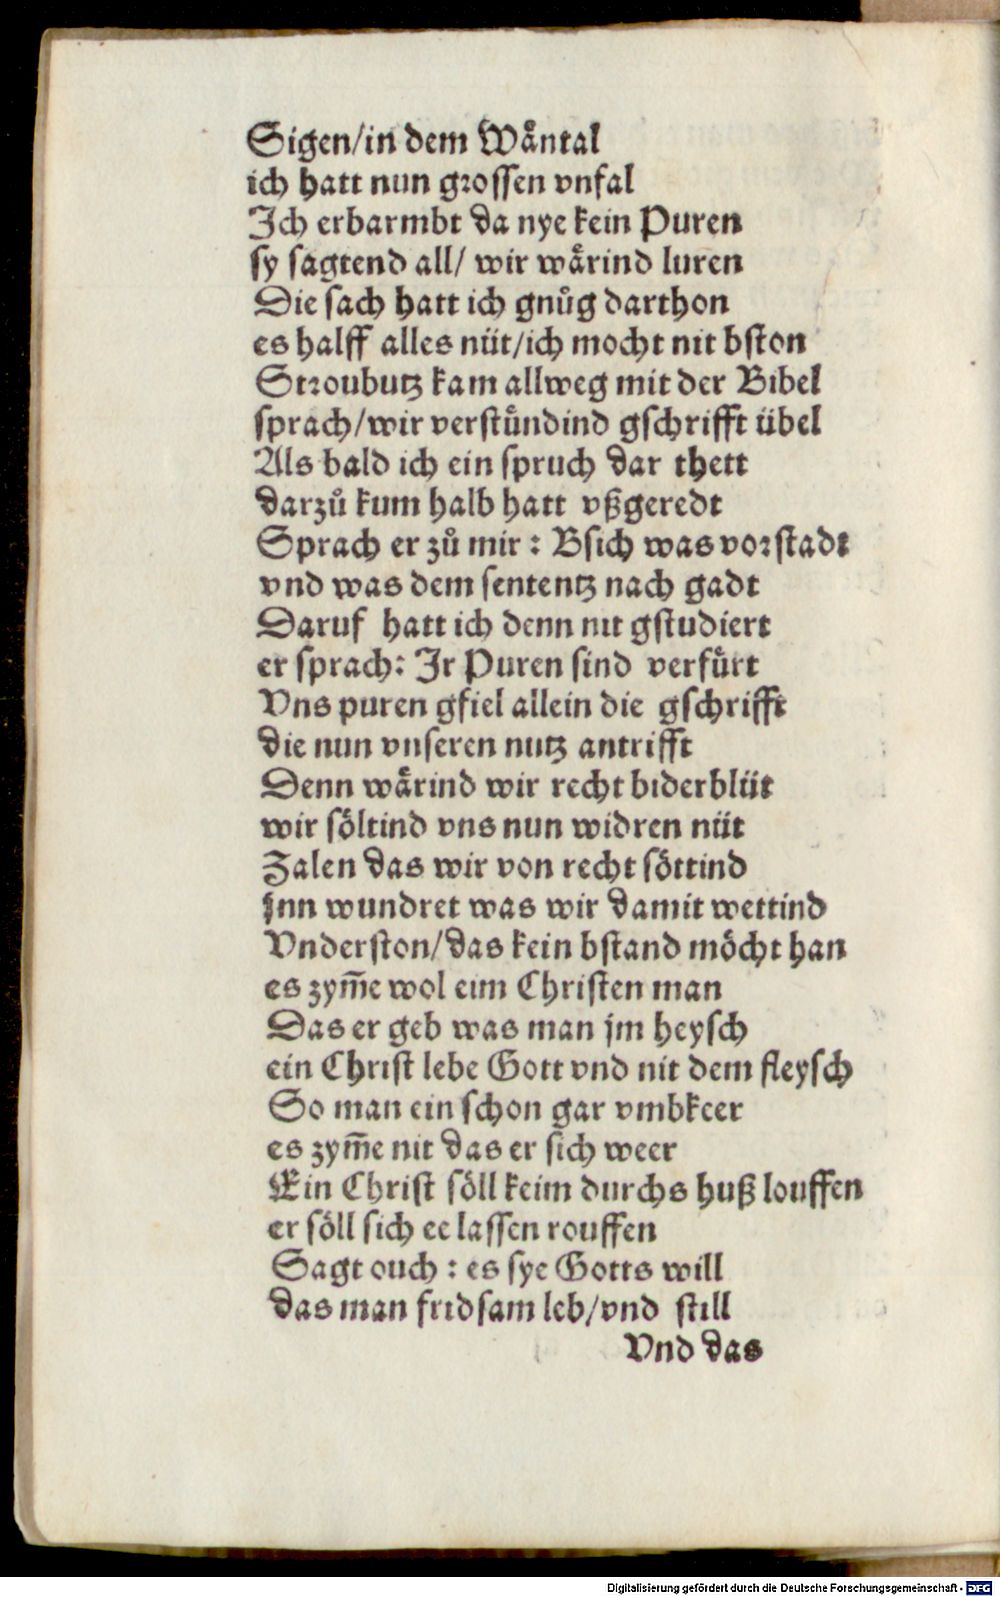 Sigen/in dem Waͤntal
ich hatt nun grossen vnfal
Ich erbarmbt da nye kein Puren
sy sagtend all/ wir waͤrind luren
Die sach hatt ich gnuͦg darthon
es halff alles nüt/ich mocht nit bston
Stroubutz kam allweg mit der Bibel
sprach/wir verstuͤndind gschrifft übel
Als bald ich ein spruch dar thett
darzuͦ kum halb hatt vßgeredt
Sprach er zuͦ mir : Bsich was vorstadt
vnd was dem sententz nach gadt
Daruf hatt ich denn nit gstudiert
er sprach: Ir Puren sind verfuͤrt
Vns puren gfiel allein die gschrifft
die nun vnseren nutz antrifft
Denn waͤrind wir recht biderblüt
wir söltind vns nun widren nüt
Zalen das wir von recht söttind
jnn wundret was wir damit wettind
Vnderston/das kein bstand möcht han
es zym̄e wol eim Christen man
Das er geb was man jm heysch
ein Christ lebe Gott vnd nit dem fleysch
So man ein schon gar vmbkeer
es zym̄e nit das er sich weer
Ein Christ söll keim durchs huß louffen
er söll sich ee lassen rouffen
Sagt ouch : es sye Gotts will
das man fridsam leb/vnd still
Vnd das
Digitalisierung gefördert durch die Deutsche Forschungsgemeinschaft - DFG